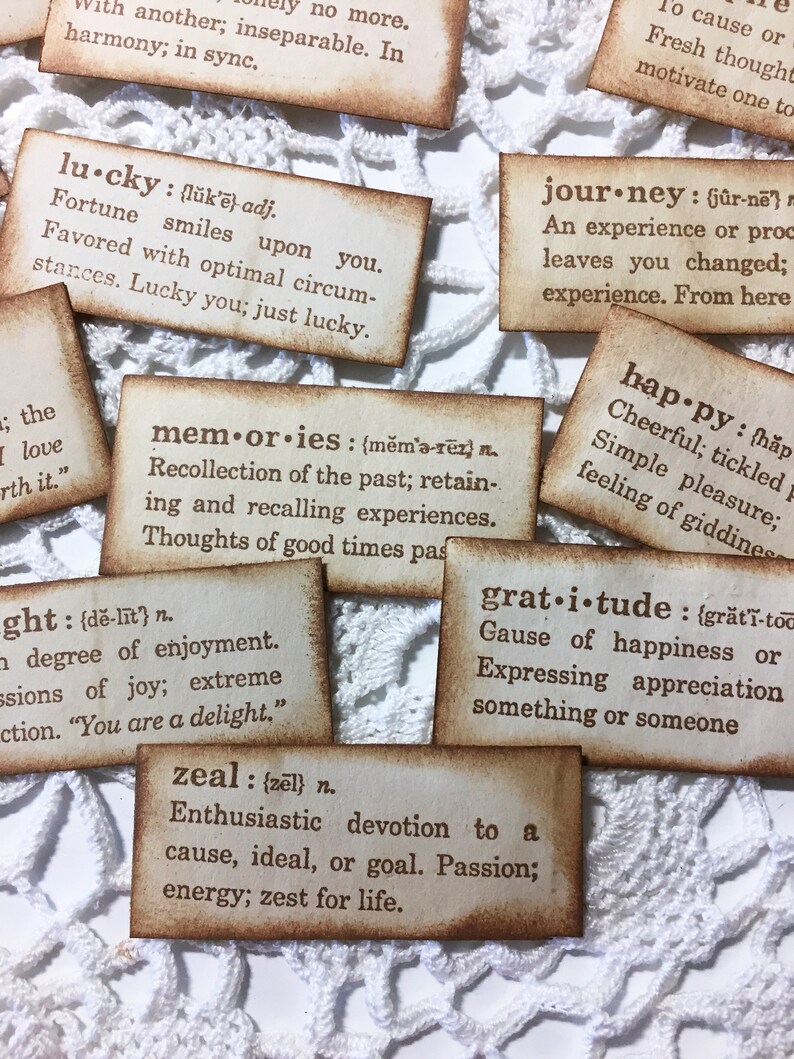 lonely no more.
With another; inseparable. In
harmony; in sync.
To cause or
Fresh thought
motivate one to
lu•cky : {lŭk'ē} adj.
Fortune smiles upon you.
Favored with optimal circum-
stances. Lucky you; just lucky.
jour•ney : {jûr-nē'} n
An experience or proc
leaves you changed;
experience. From here
; the
I love
rth it.”
mem•or•ies : {mĕm'ə-rēz} n.
Recollection of the past; retain-
ing and recalling experiences.
Thoughts of good times pas
hap•py : {hăp
Cheerful; tickled p
Simple pleasure;
feeling of giddiness
ght : {dĕ-līt'} n.
h degree of enjoyment.
ssions of joy; extreme
ction. “You are a delight.”
grat•i•tude : {grăt'ĭ-too
Gause of happiness or
Expressing appreciation
something or someone
zeal : {zēl} n.
Enthusiastic devotion to a
cause, ideal, or goal. Passion;
energy; zest for life.